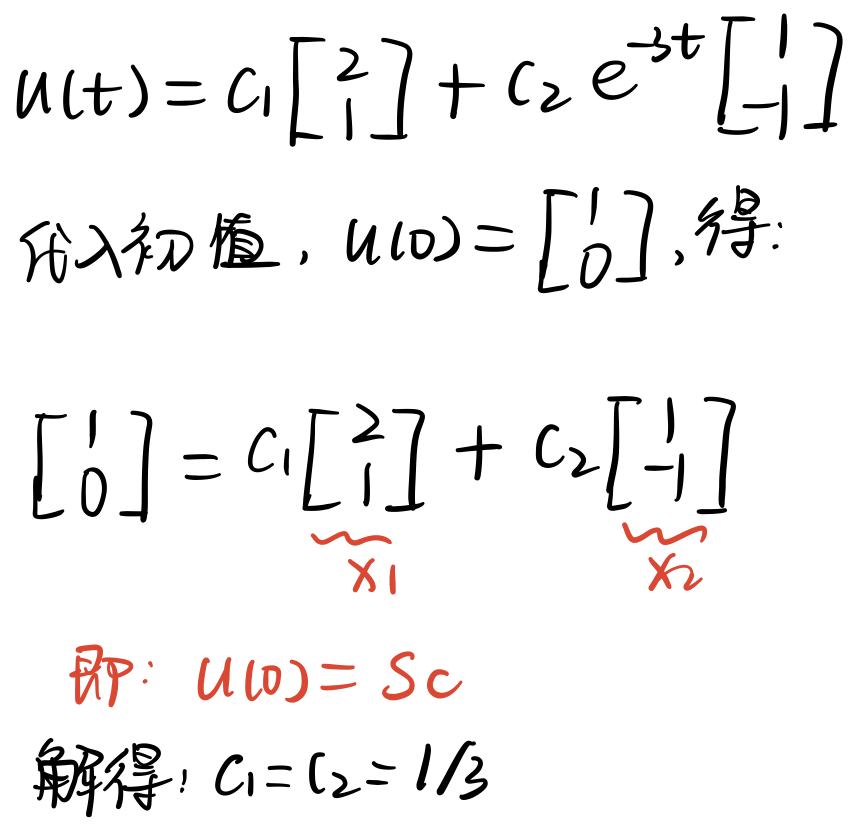 u(t) = c₁ [2 1] + c₂ e^{-3t} [1 -1]
代入初值, u(0) = [1 0], 得:
[1 0] = c₁ [2 1] + c₂ [1 -1]
x₁ x₂
即: u(0) = Sc
解得: c₁ = c₂ = 1/3